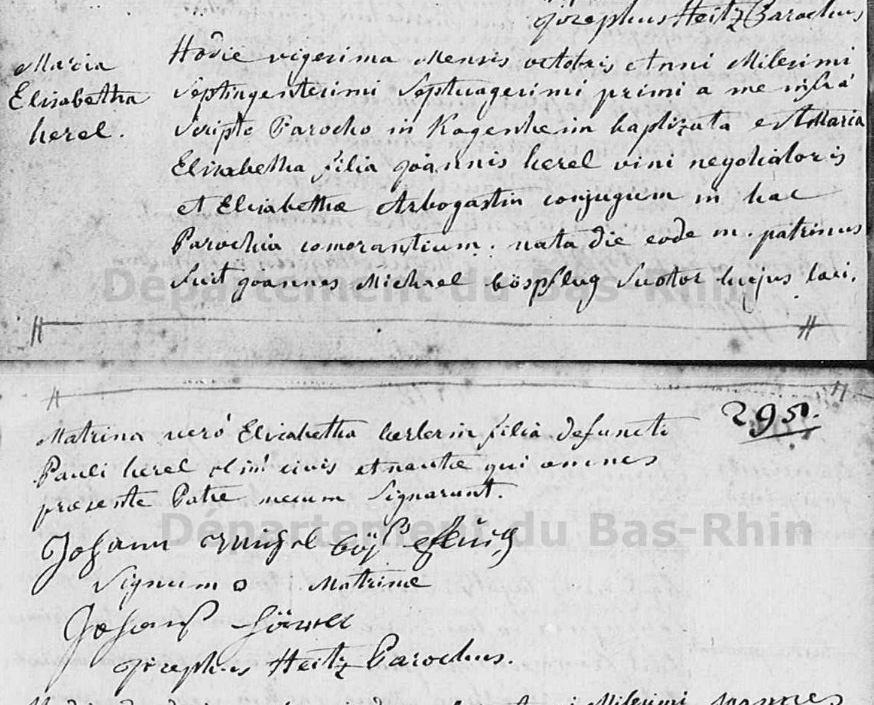 Josephus Heitz Parochus
Maria
Elisabetha
herel.
Hodie vigesima Mensis octobris Anni Milesimi
septingentesimi septuagesimi primi a me infrà
scripto Parocho in Kogenheim baptizata est Maria
Elisabetha filia joannis herel vini negotiatoris
et Elisabethæ Arbogastin conjugum in hac
Parochia comorantium. nata die eodem. patrinus
fuit joannes Michael böspflug sutor hujus loci.
Département du Bas-Rhin
295.
Matrina verò Elisabetha herlerin filia defuncti
Pauli herel civis et nautæ qui omnes
præsente Patre mecum signarunt.
Département du Bas-Rhin
Johann
Signum o Matrinæ
Josephus Heitz Parochus.